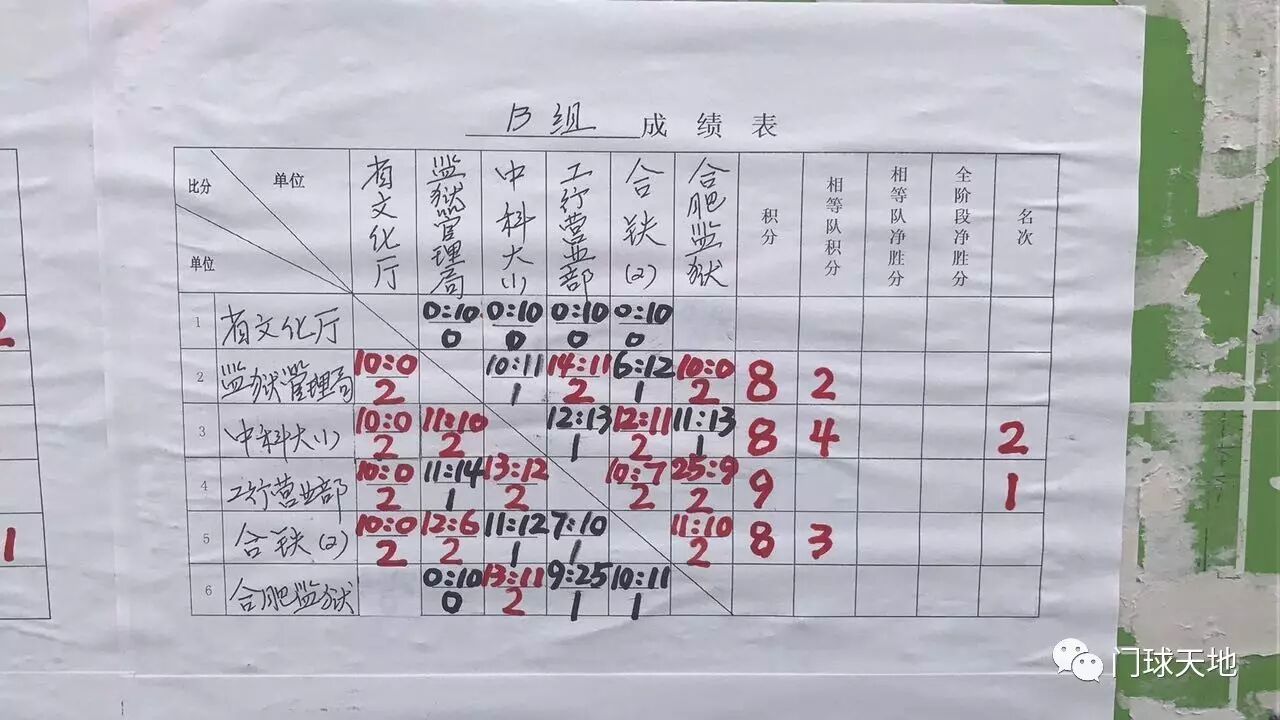 B组 成绩表
比分 单位 单位 省文化厅 监狱管理局 中科大(1) 工行营业部 合铁(2) 合肥监狱 积分 相等队积分 相等队净胜分 全阶段净胜分 名次
1 省文化厅 0:10 0 0:10 0 0:10 0 0:10 0
2 监狱管理局 10:0 2 10:11 1 14:11 2 6:12 1 10:0 2 8 2
3 中科大(1) 10:0 2 11:10 2 12:13 1 12:11 2 11:13 1 8 4 2
4 工行营业部 10:0 2 11:14 1 13:12 2 10:7 2 25:9 2 9 1
5 合铁(2) 10:0 2 12:6 2 11:12 1 7:10 1 11:10 2 8 3
6 合肥监狱 0:10 0 13:11 2 9:25 1 10:11 1
2
1
门球天地